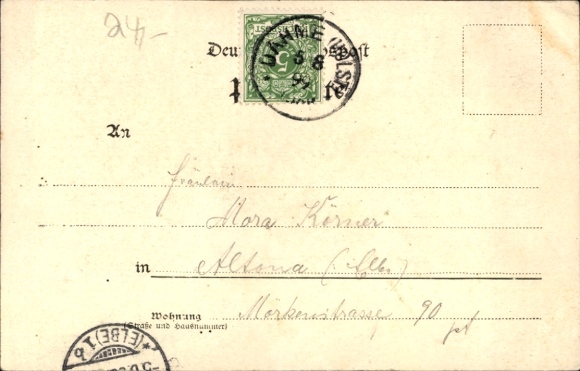 24,-
DAHME (HOLST.)
3 8
99
5
An
Fräulein
Mora Körner
in Altona (Elbe)
Wohnung
(Straße und Hausnummer)
Mörkenstrasse 90
pt
*(ELBE) 1 b